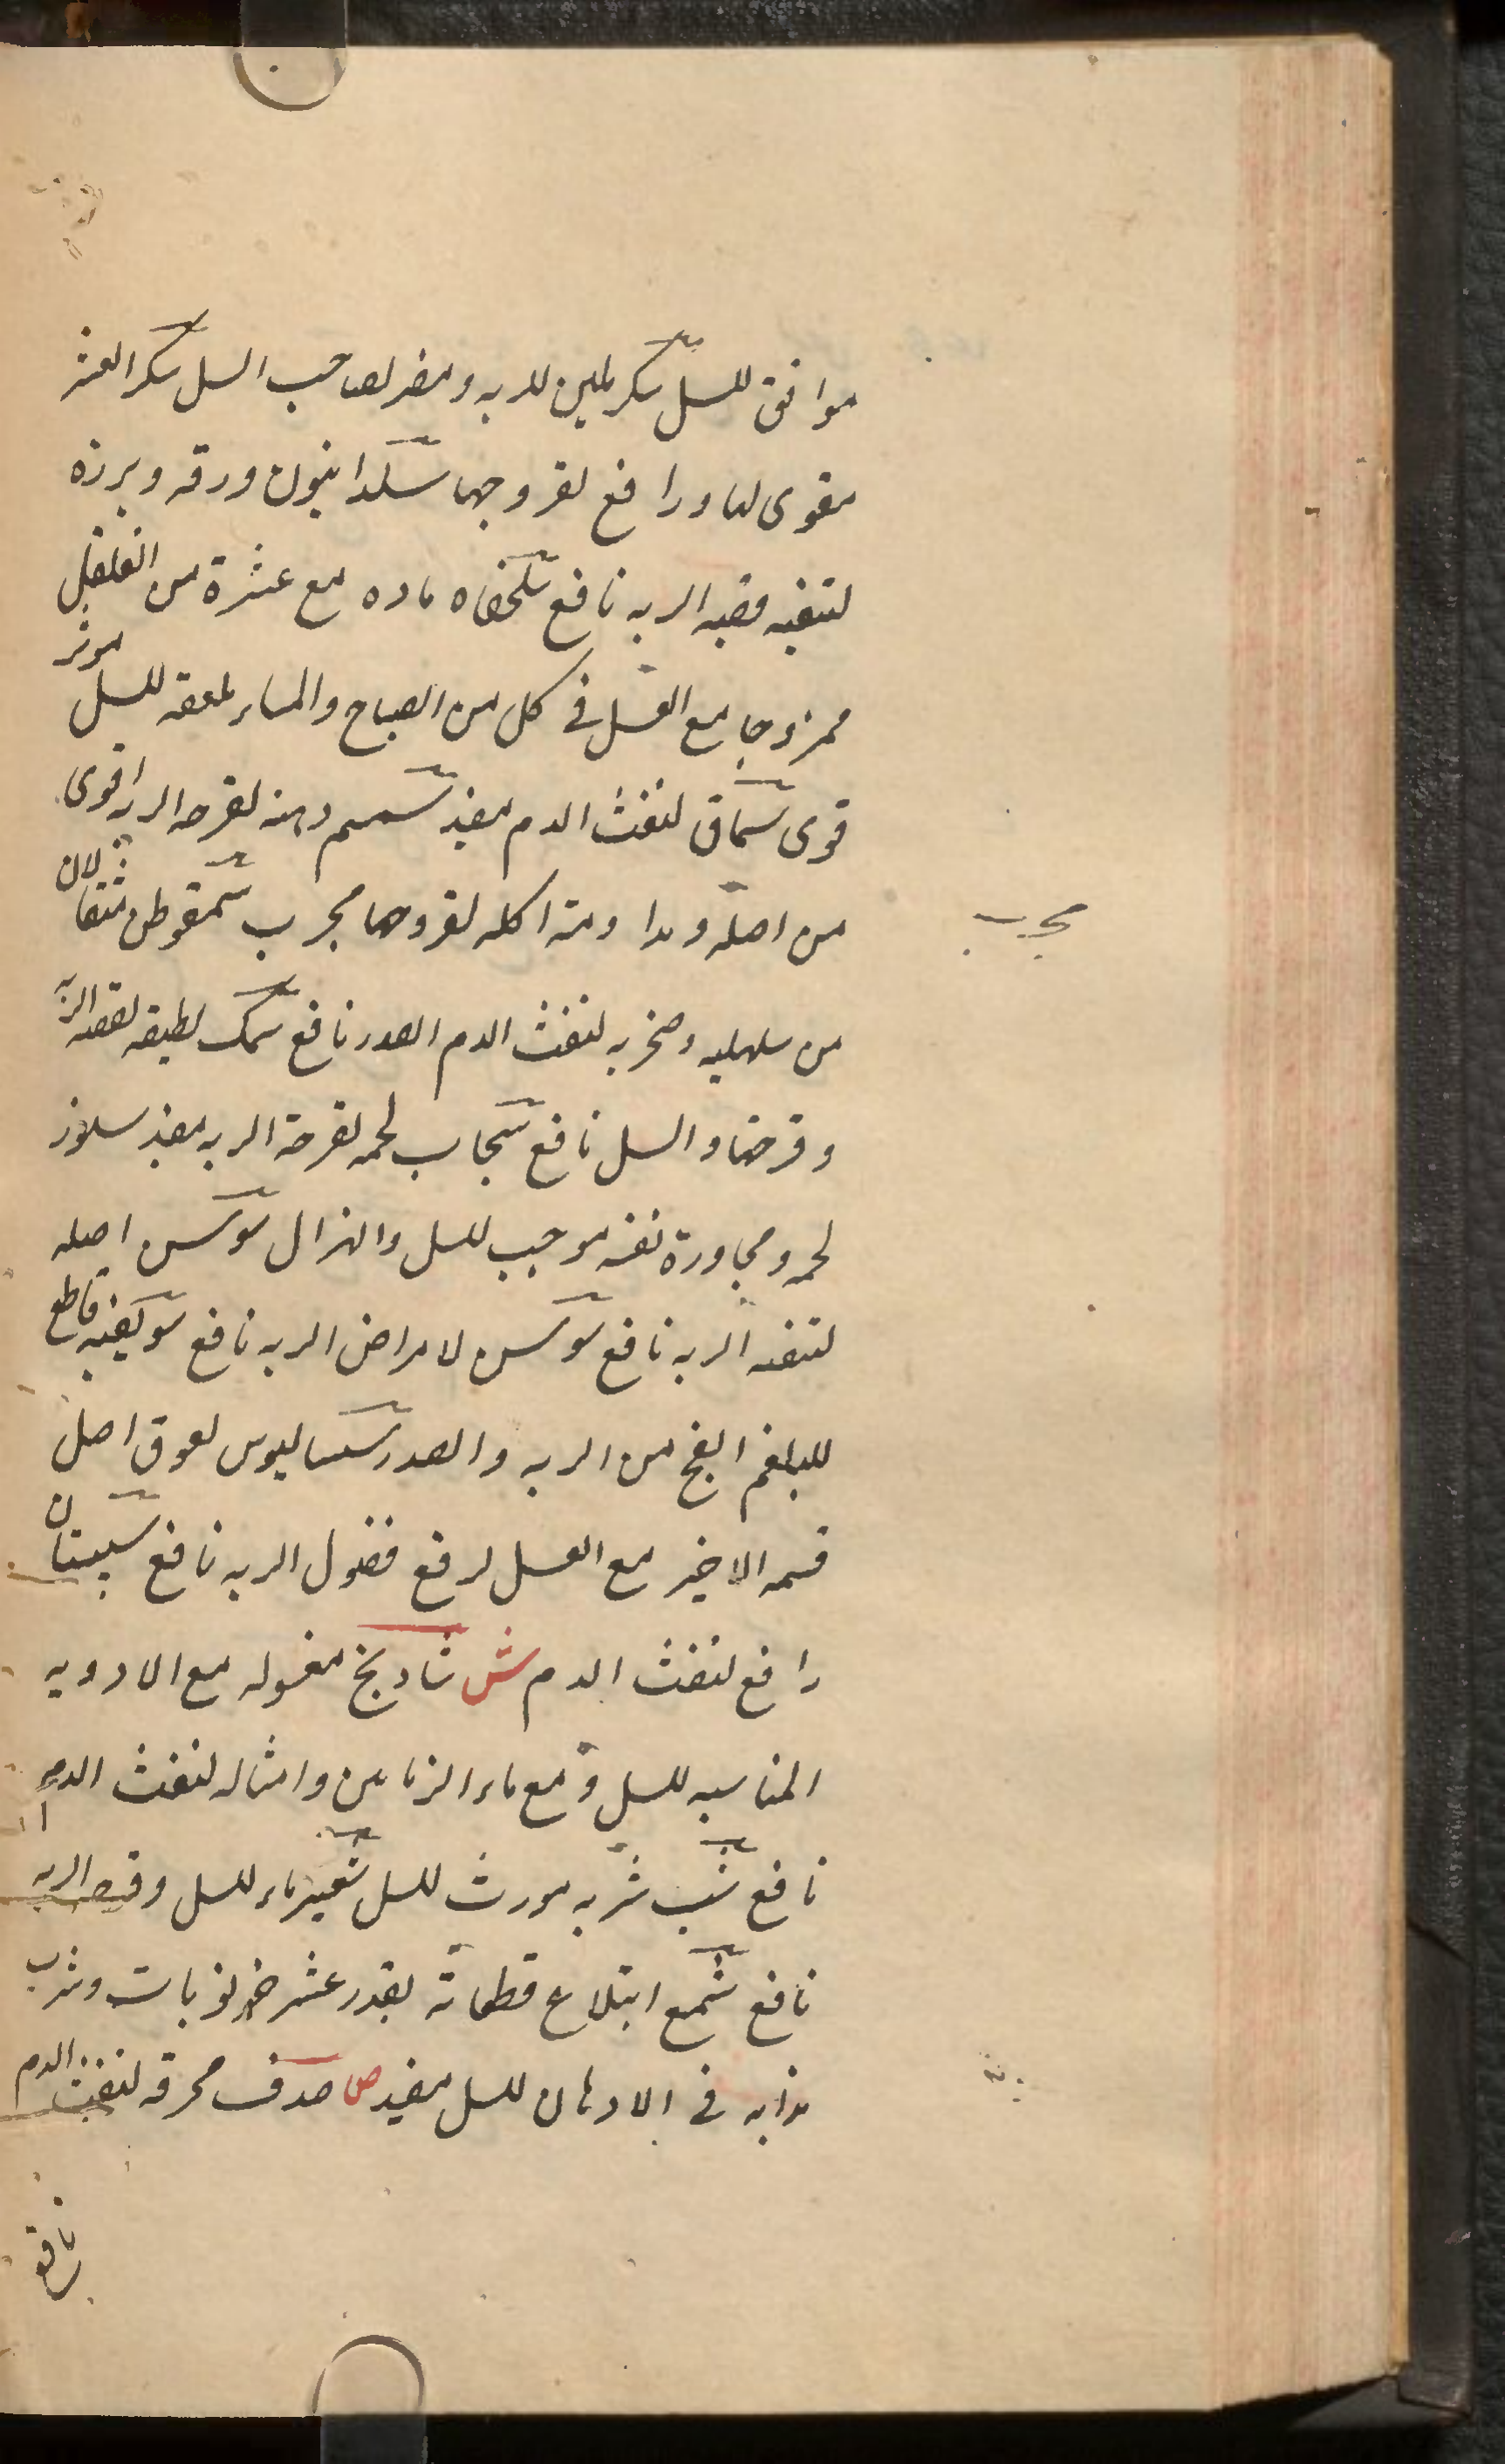 موافق للسل سكر ملين للريه ومضر لصاحب السل سكر العشر
مقوى لها ورافع لقروحها سكدا بنيون ورقه وبرزه
لتنقيه قصبه الريه نافع سلحفاه ماده مع عشرة من الفلفل
ممزوجا مع العسل فى كل من الصباح والمساء ملعقه للسل موثر
قوى سماق لنفث الدم مفيد سمسم دهنه لقرحه الريه اقوى
من اصله وبدا ومته اكله لقروحها مجرب سمقوطن مثقالان
مجرب
من سهليه وصخريه لنفث الدم الصدر نافع سمك لطيفه لقصه الريه
وقرحتها والسل نافع سنجاب لحمه لقرحة الريه مفيد سلور
لحمه ومجاورة نفسه موجب للسل والهزال سوس اصله
لتنقيه الريه نافع سوسن لامراض الريه نافع سويقيه قاطع
للبلغم الفج من الريه والصدر سساليوس لعوق اصل
قسمه الاخير مع العسل لرفع فضول الريه نافع سبستان
رافع لنفث الدم ش شادنج مغسوله مع الادويه
المناسبه للسل و مع ماء الرمامين وامثاله لنفث الدم
نافع شب شربه مورث للسل شعير ماء للسل وقرحه الريه
نافع شمع ابتلاع قطعاته بقدر عشر خرنوبات وشرب
مذابه فى الادهان للسل مفيد ص صدف محرقه لنفث الدم
نافع